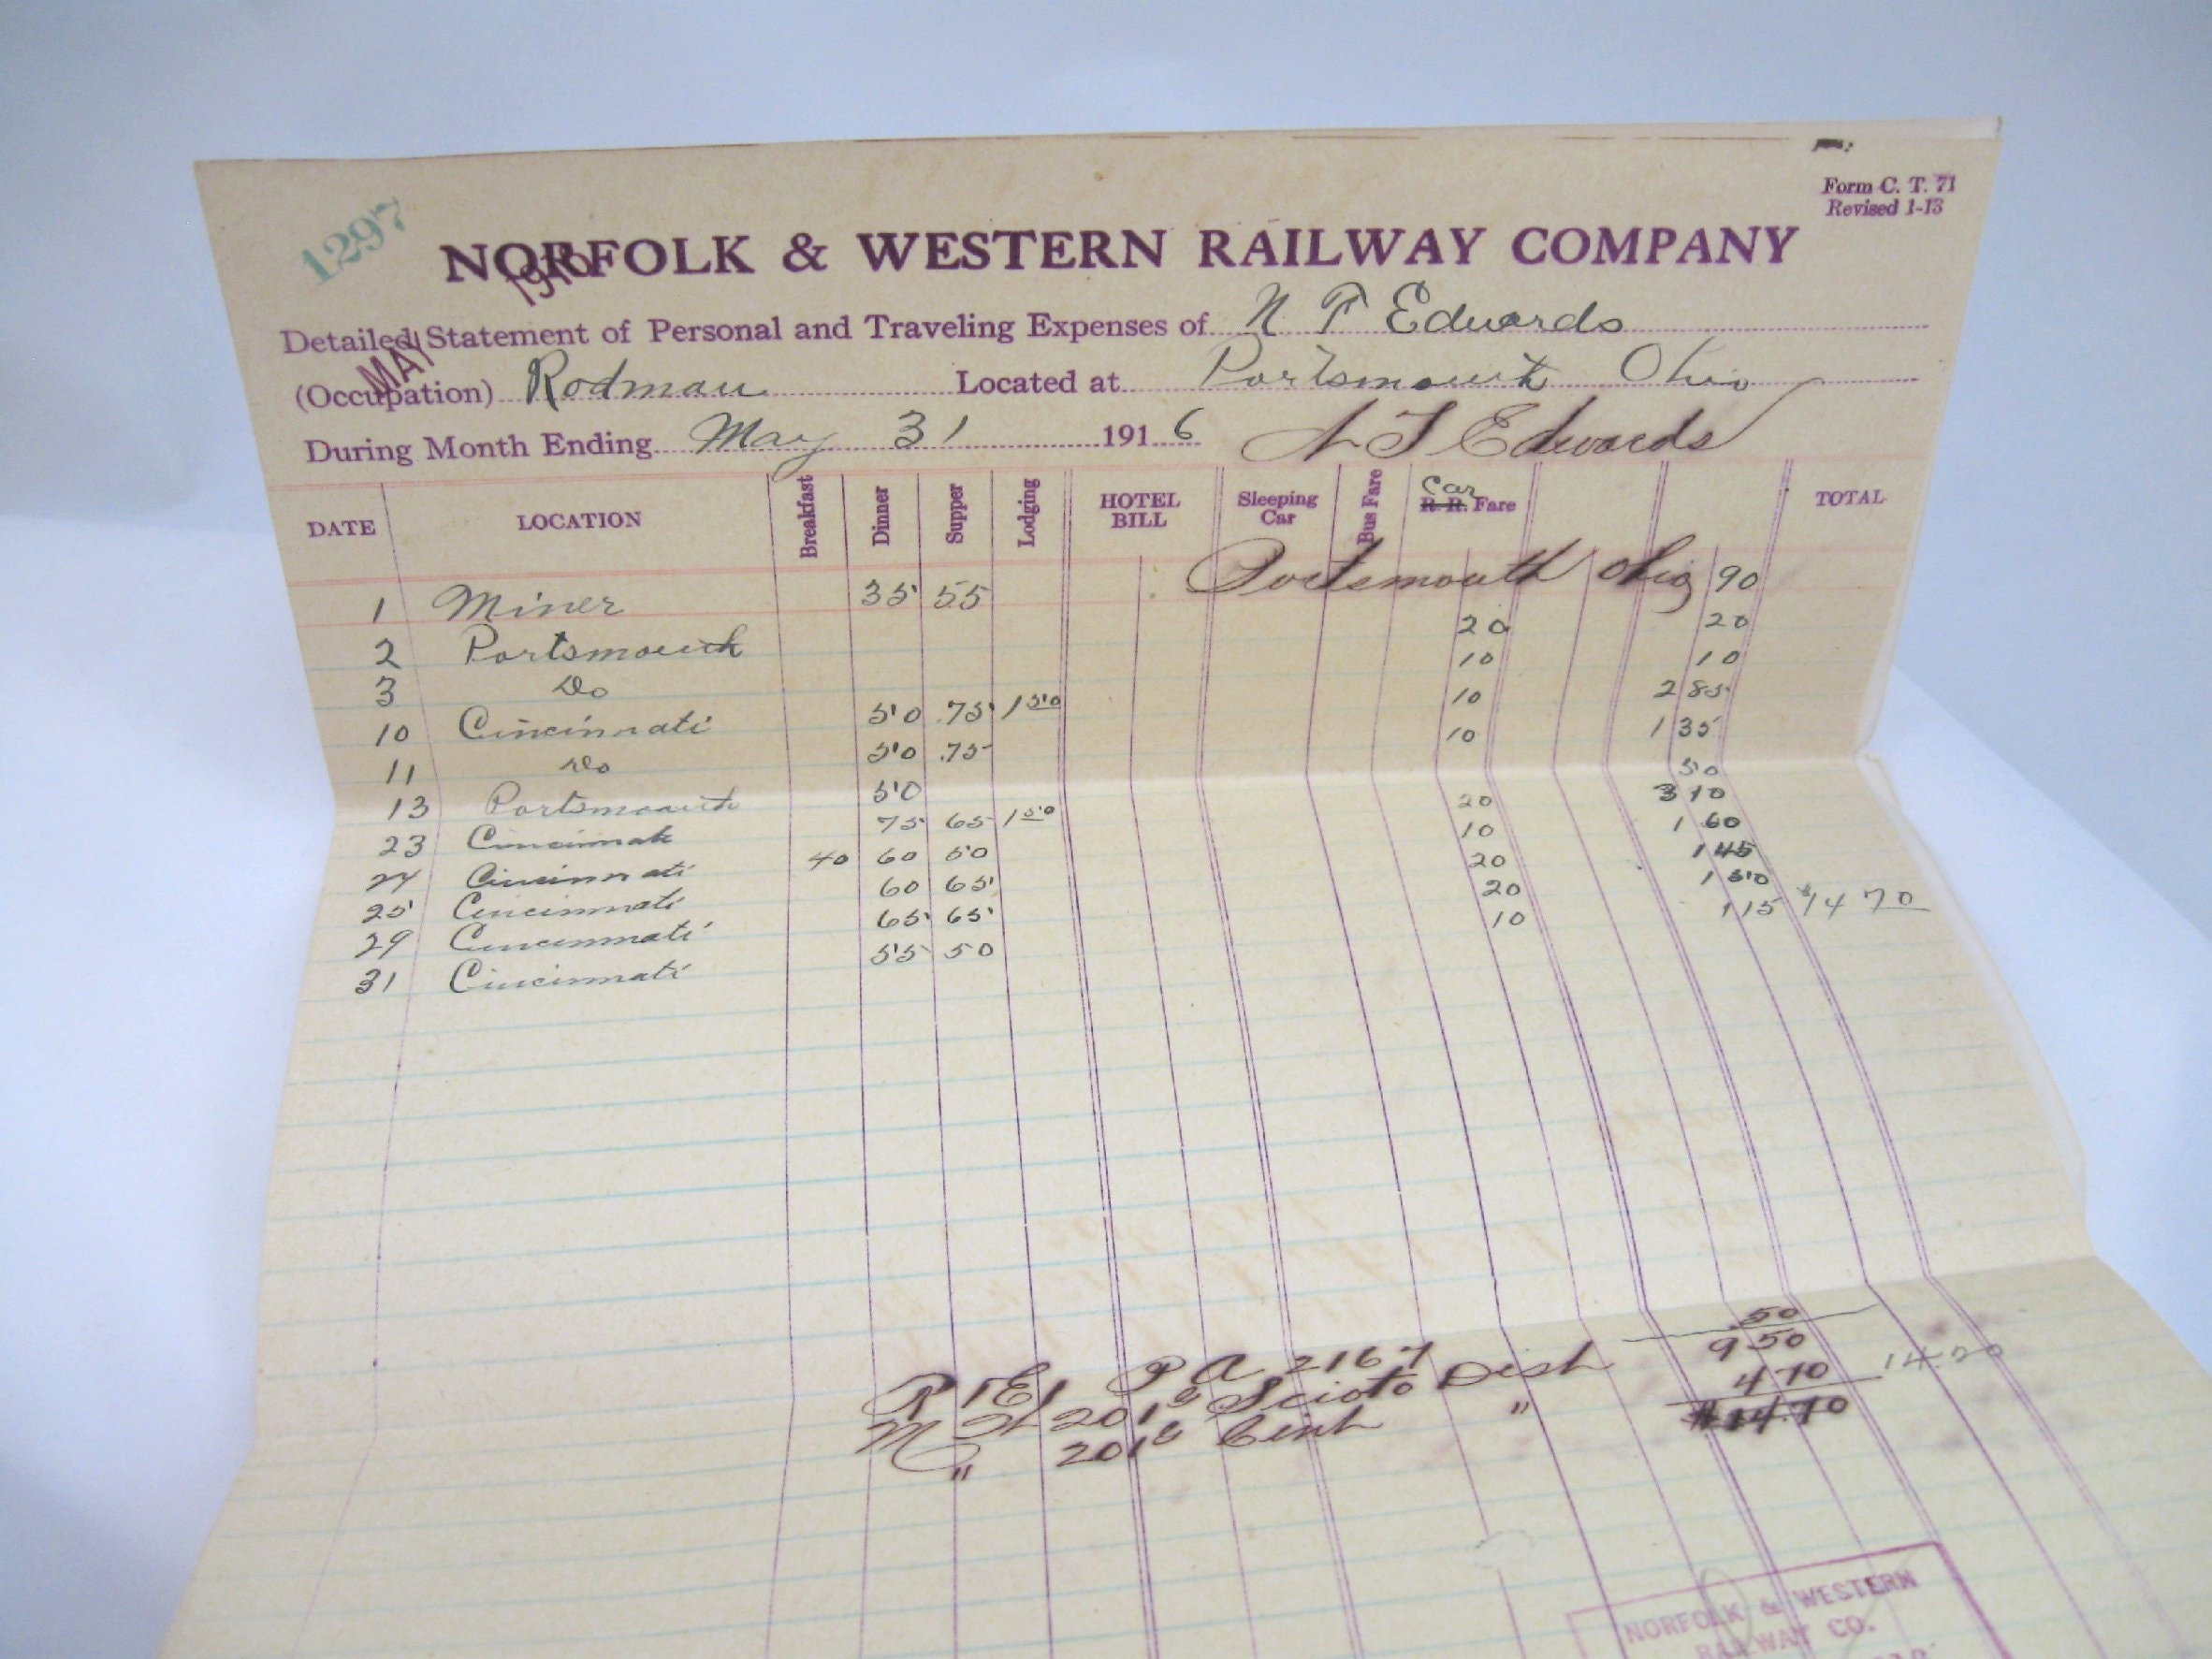 Form C. T. 71
Revised 1-13
1297
NORFOLK & WESTERN RAILWAY COMPANY
MAY 1916
Detailed Statement of Personal and Traveling Expenses of N F Edwards
(Occupation) Rodman Located at Portsmouth Ohio
During Month Ending May 31 1916 N F Edwards
DATE LOCATION Breakfast Dinner Supper Lodging HOTEL BILL Sleeping Car Bus Fare Car R. R. Fare TOTAL
Portsmouth Ohio
1 Miner 35 55 90
2 Portsmouth 20 20
3 Do 10 10
10 Cincinnati 50 .75 1 50 10 2 85
11 Do 50 .75 10 1 35
13 Portsmouth 50 50
23 Cincinnati 75 65 1 50 20 3 10
24 Cincinnati 40 60 50 10 1 60
25 Cincinnati 60 65 20 1 45
29 Cincinnati 65 65 20 1 50
31 Cincinnati 55 50 10 1 15 $14 70
P A 2167 50
201 Scioto Dist 9 50
" 201 Cent " 4 70 14.20
$14.70
NORFOLK & WESTERN
RAILWAY CO.